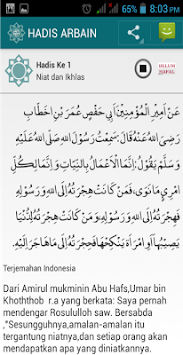 8:03 PM
HADIS ARBAIN
Hadis Ke 1
Niat dan Ikhlas
عَنْ أَمِيْرِ الْمُؤْمِنِيْنَ أَبِي حَفْصٍ عُمَرَ بْنِ الْخَطَّابِ
رَضِيَ اللهُ عَنْهُ قَالَ: سَمِعْتُ رَسُوْلَ اللهِ صَلَّى اللهُ عَلَيْهِ
وَسَلَّمَ يَقُوْلُ: إِنَّمَا الْأَعْمَالُ بِالنِّيَّاتِ وَإِنَّمَا لِكُلِّ
امْرِئٍ مَا نَوَى، فَمَنْ كَانَتْ هِجْرَتُهُ إِلَى اللهِ وَرَسُوْلِهِ
فَهِجْرَتُهُ إِلَى اللهِ وَرَسُوْلِهِ وَمَنْ كَانَتْ هِجْرَتُهُ لِدُنْيَا
يُصِيْبُهَا أَوِ امْرَأَةٍ يَنْكِحُهَا فَهِجْرَتُهُ إِلَى مَا هَاجَرَ إِلَيْهِ.
Terjemahan Indonesia
Dari Amirul mukminin Abu Hafs,Umar bin
Khoththob r.a yang berkata: Saya pernah
mendengar Rosululloh saw. Bersabda
,"Sesungguhnya,amalan-amalan itu
tergantung niatnya,dan setiap orang akan
mendapatkan apa yang diniatkannya.